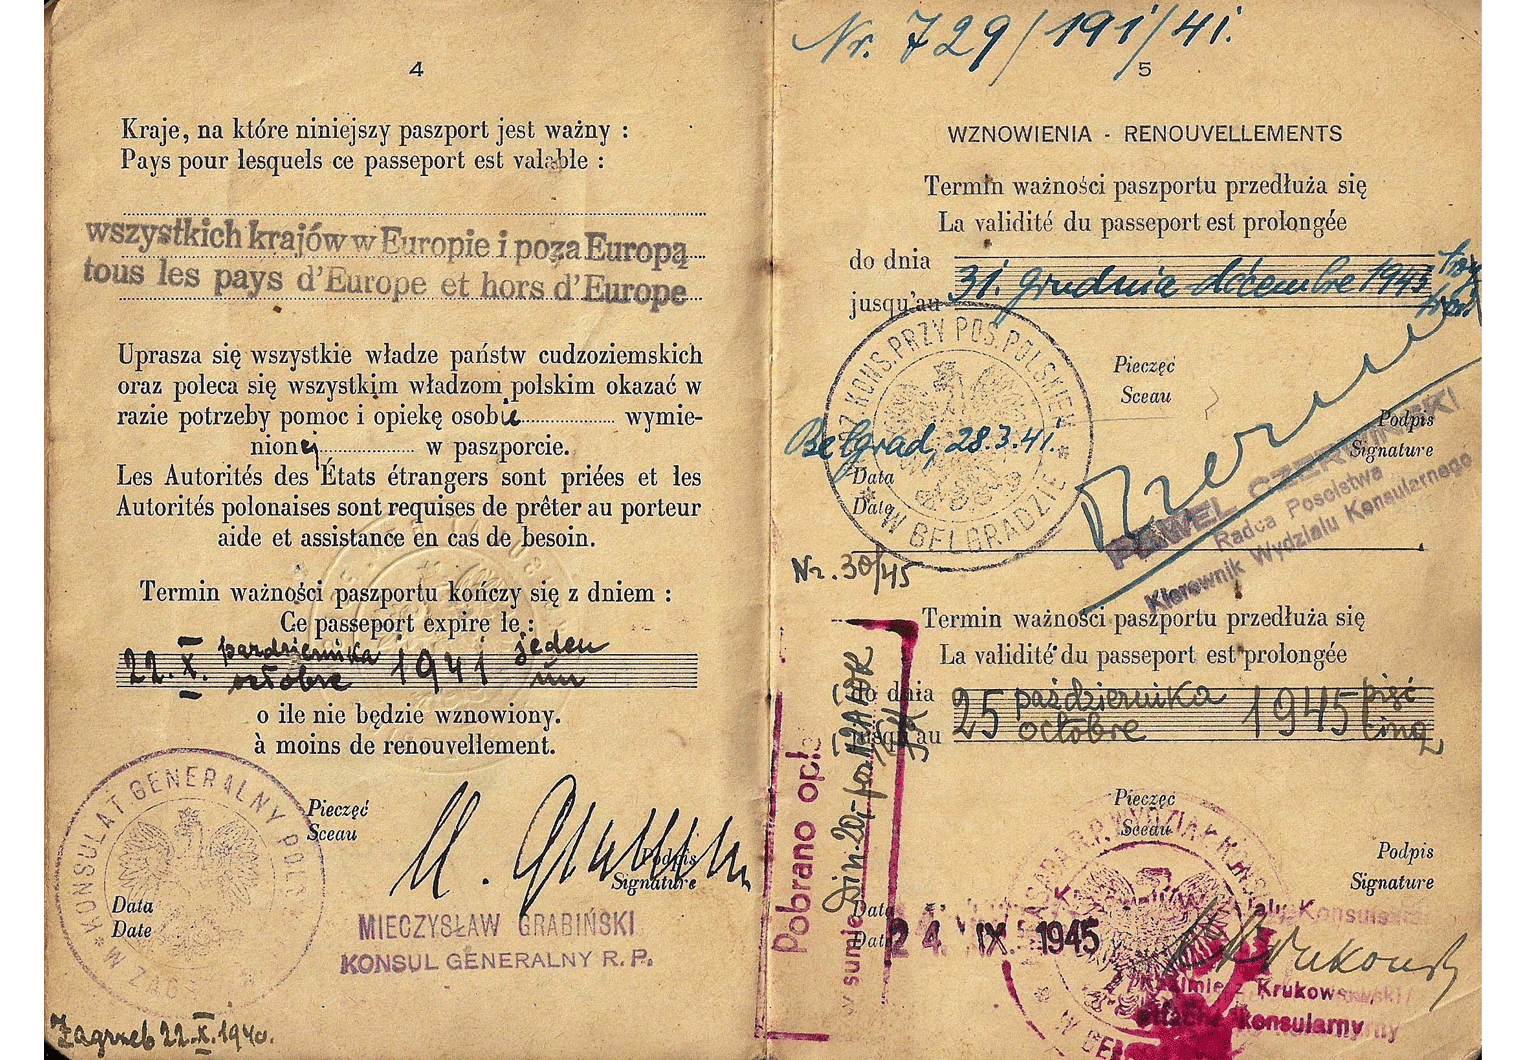 4
Kraje, na które niniejszy paszport jest ważny :
Pays pour lesquels ce passeport est valable :
wszystkich krajów w Europie i poza Europą
tous les pays d'Europe et hors d'Europe
Uprasza się wszystkie władze państw cudzoziemskich
oraz poleca się wszystkim władzom polskim okazać w
razie potrzeby pomoc i opiekę osobie wymie-
nionej w paszporcie.
Les Autorités des États étrangers sont priées et les
Autorités polonaises sont requises de prêter au porteur
aide et assistance en cas de besoin.
Termin ważności paszportu kończy się z dniem :
Ce passeport expire le :
22. X. października 1941 jeden
octobre un
o ile nie będzie wznowiony.
à moins de renouvellement.
Pieczęć
Sceau
KONSULAT GENERALNY POLSKI
Podpis
Signature
Data
Date
MIECZYSŁAW GRABIŃSKI
KONSUL GENERALNY R. P.
Zagrzeb 22.X.1940.
Nr. 729/191/41.
5
WZNOWIENIA - RENOUVELLEMENTS
Termin ważności paszportu przedłuża się
La validité du passeport est prolongée
do dnia
jusqu'au
31. grudnia décembre 1943 trzy
trois
Pieczęć
Sceau
WYDZ. KONS. PRZY POS. POLSKIEM
W BELGRADZIE
Podpis
Signature
Belgrad, 28.3.41.
Data
Date
PAWEŁ CZERWIŃSKI
Radca Poselstwa
Kierownik Wydziału Konsularnego
Nr. 30/45
Termin ważności paszportu przedłuża się
La validité du passeport est prolongée
do dnia
jusqu'au
25 października 1945 pięć
octobre cinq
Pobrano opł
w sumie Din. 20.-
Pieczęć
Sceau
AMBASADA R.P. WYDZIAŁ KONS
Podpis
Signature
Data
Date
24. IX. 1945
Kazimierz Krukowski
attaché konsularny